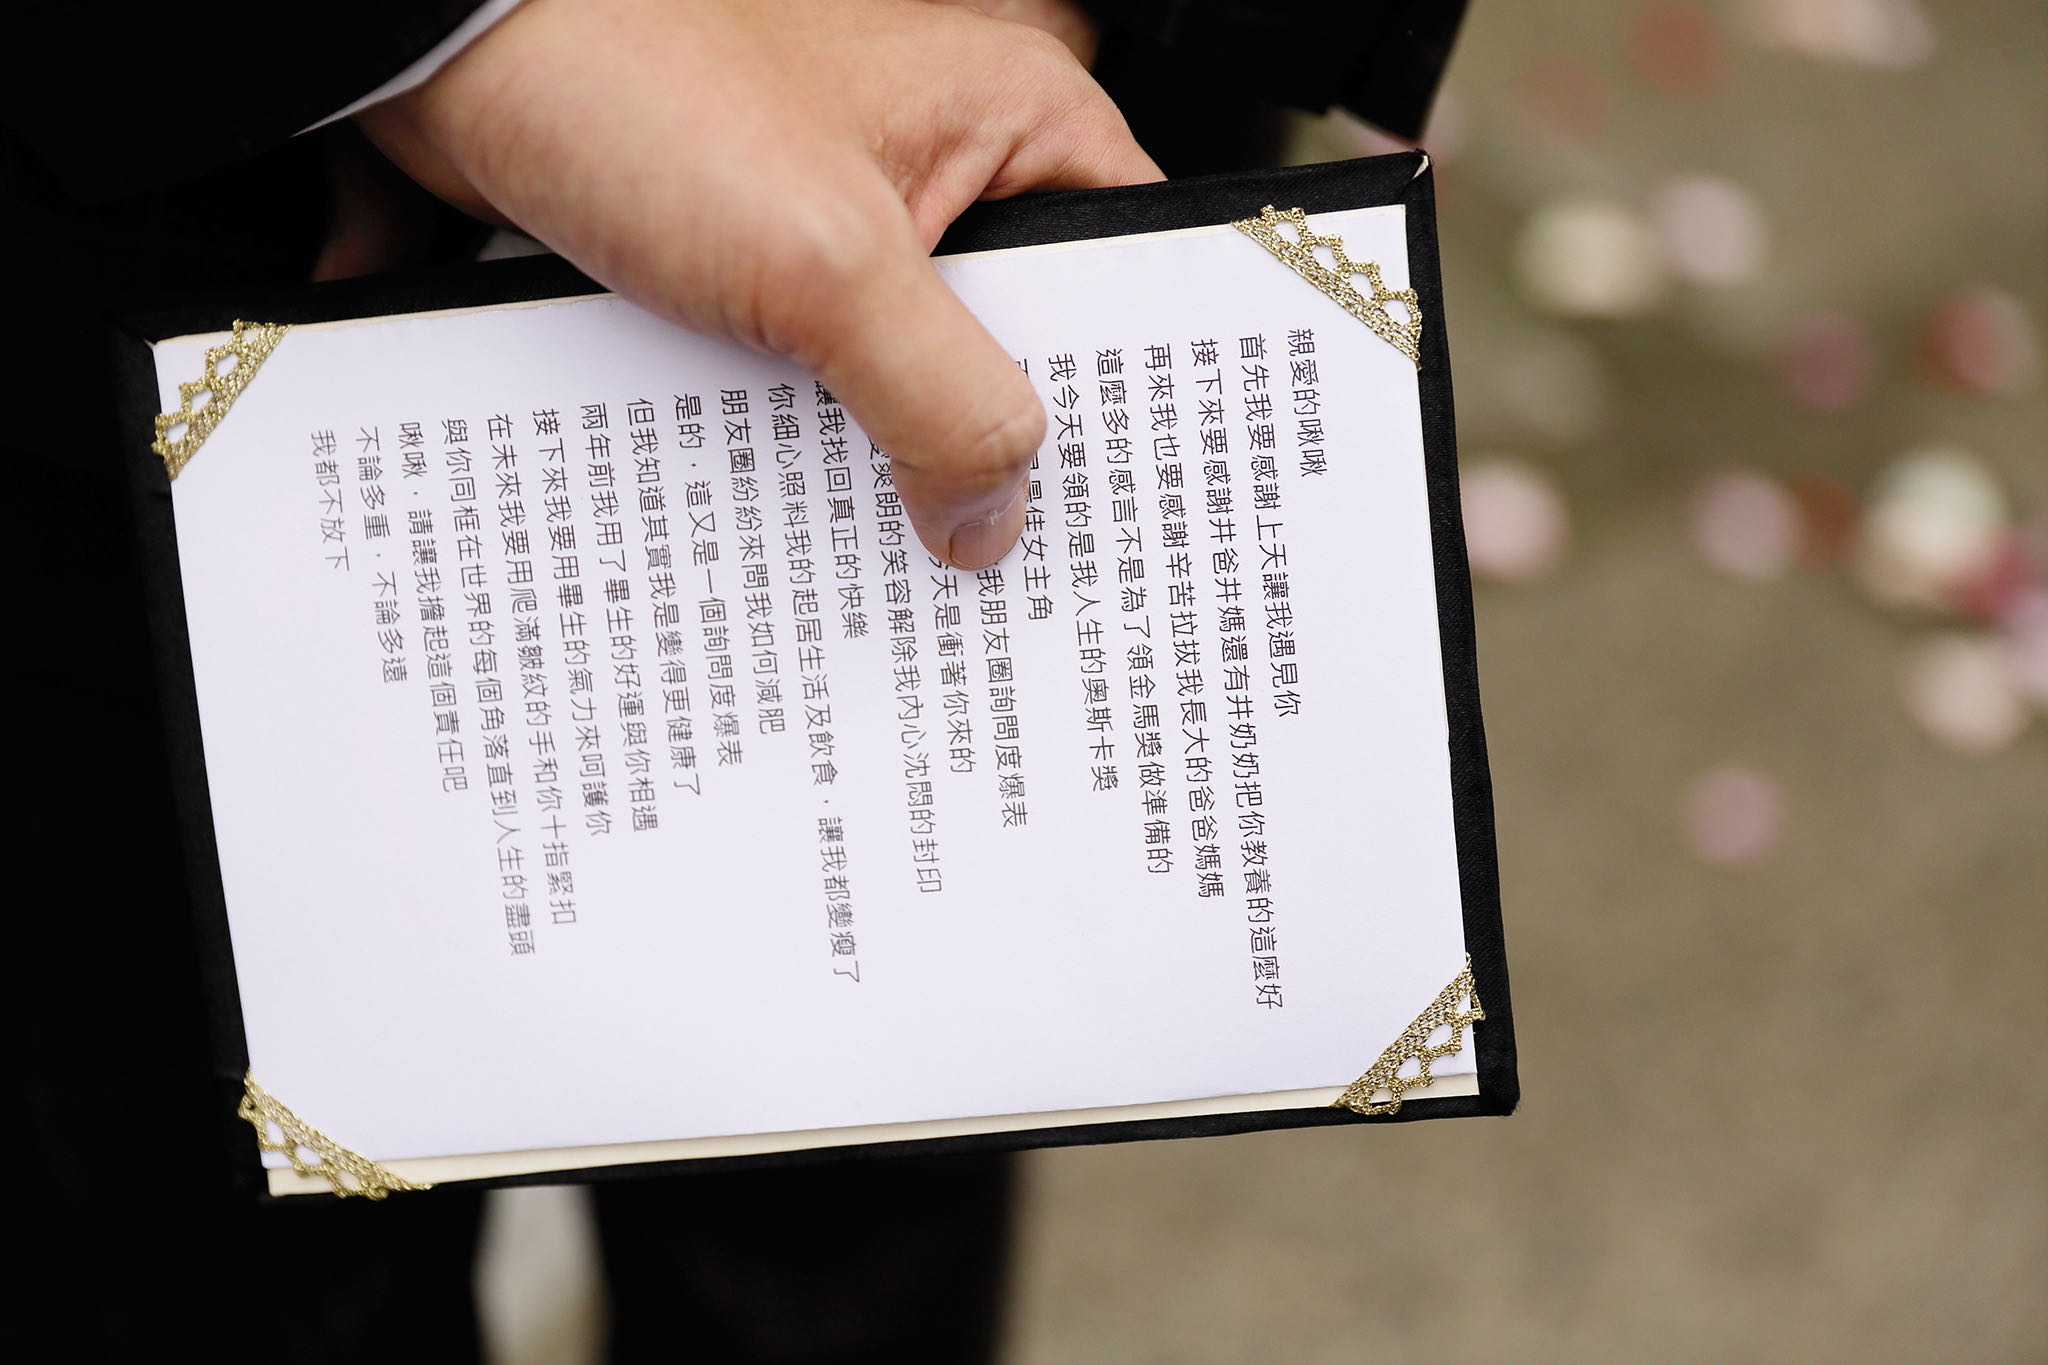 親愛的啾啾
首先我要感謝上天讓我遇見你
接下來要感謝井爸井媽還有井奶奶把你教養的這麼好
再來我也要感謝辛苦拉拔我長大的爸爸媽媽
這麼多的感言不是為了領金馬獎做準備的
我今天要領的是我人生的奧斯卡獎
最佳女主角
我朋友圈詢問度爆表
今天是衝著你來的
爽朗的笑容解除我內心沈悶的封印
讓我找回真正的快樂
你細心照料我的起居生活及飲食，讓我都變瘦了
朋友圈紛紛來問我如何減肥
是的，這又是一個詢問度爆表
但我知道其實我是變得更健康了
兩年前我用了畢生的好運與你相遇
接下來我要用畢生的氣力來呵護你
在未來我要用爬滿皺紋的手和你十指緊扣
與你同框在世界的每個角落直到人生的盡頭
啾啾，請讓我擔起這個責任吧
不論多重，不論多遠
我都不放下